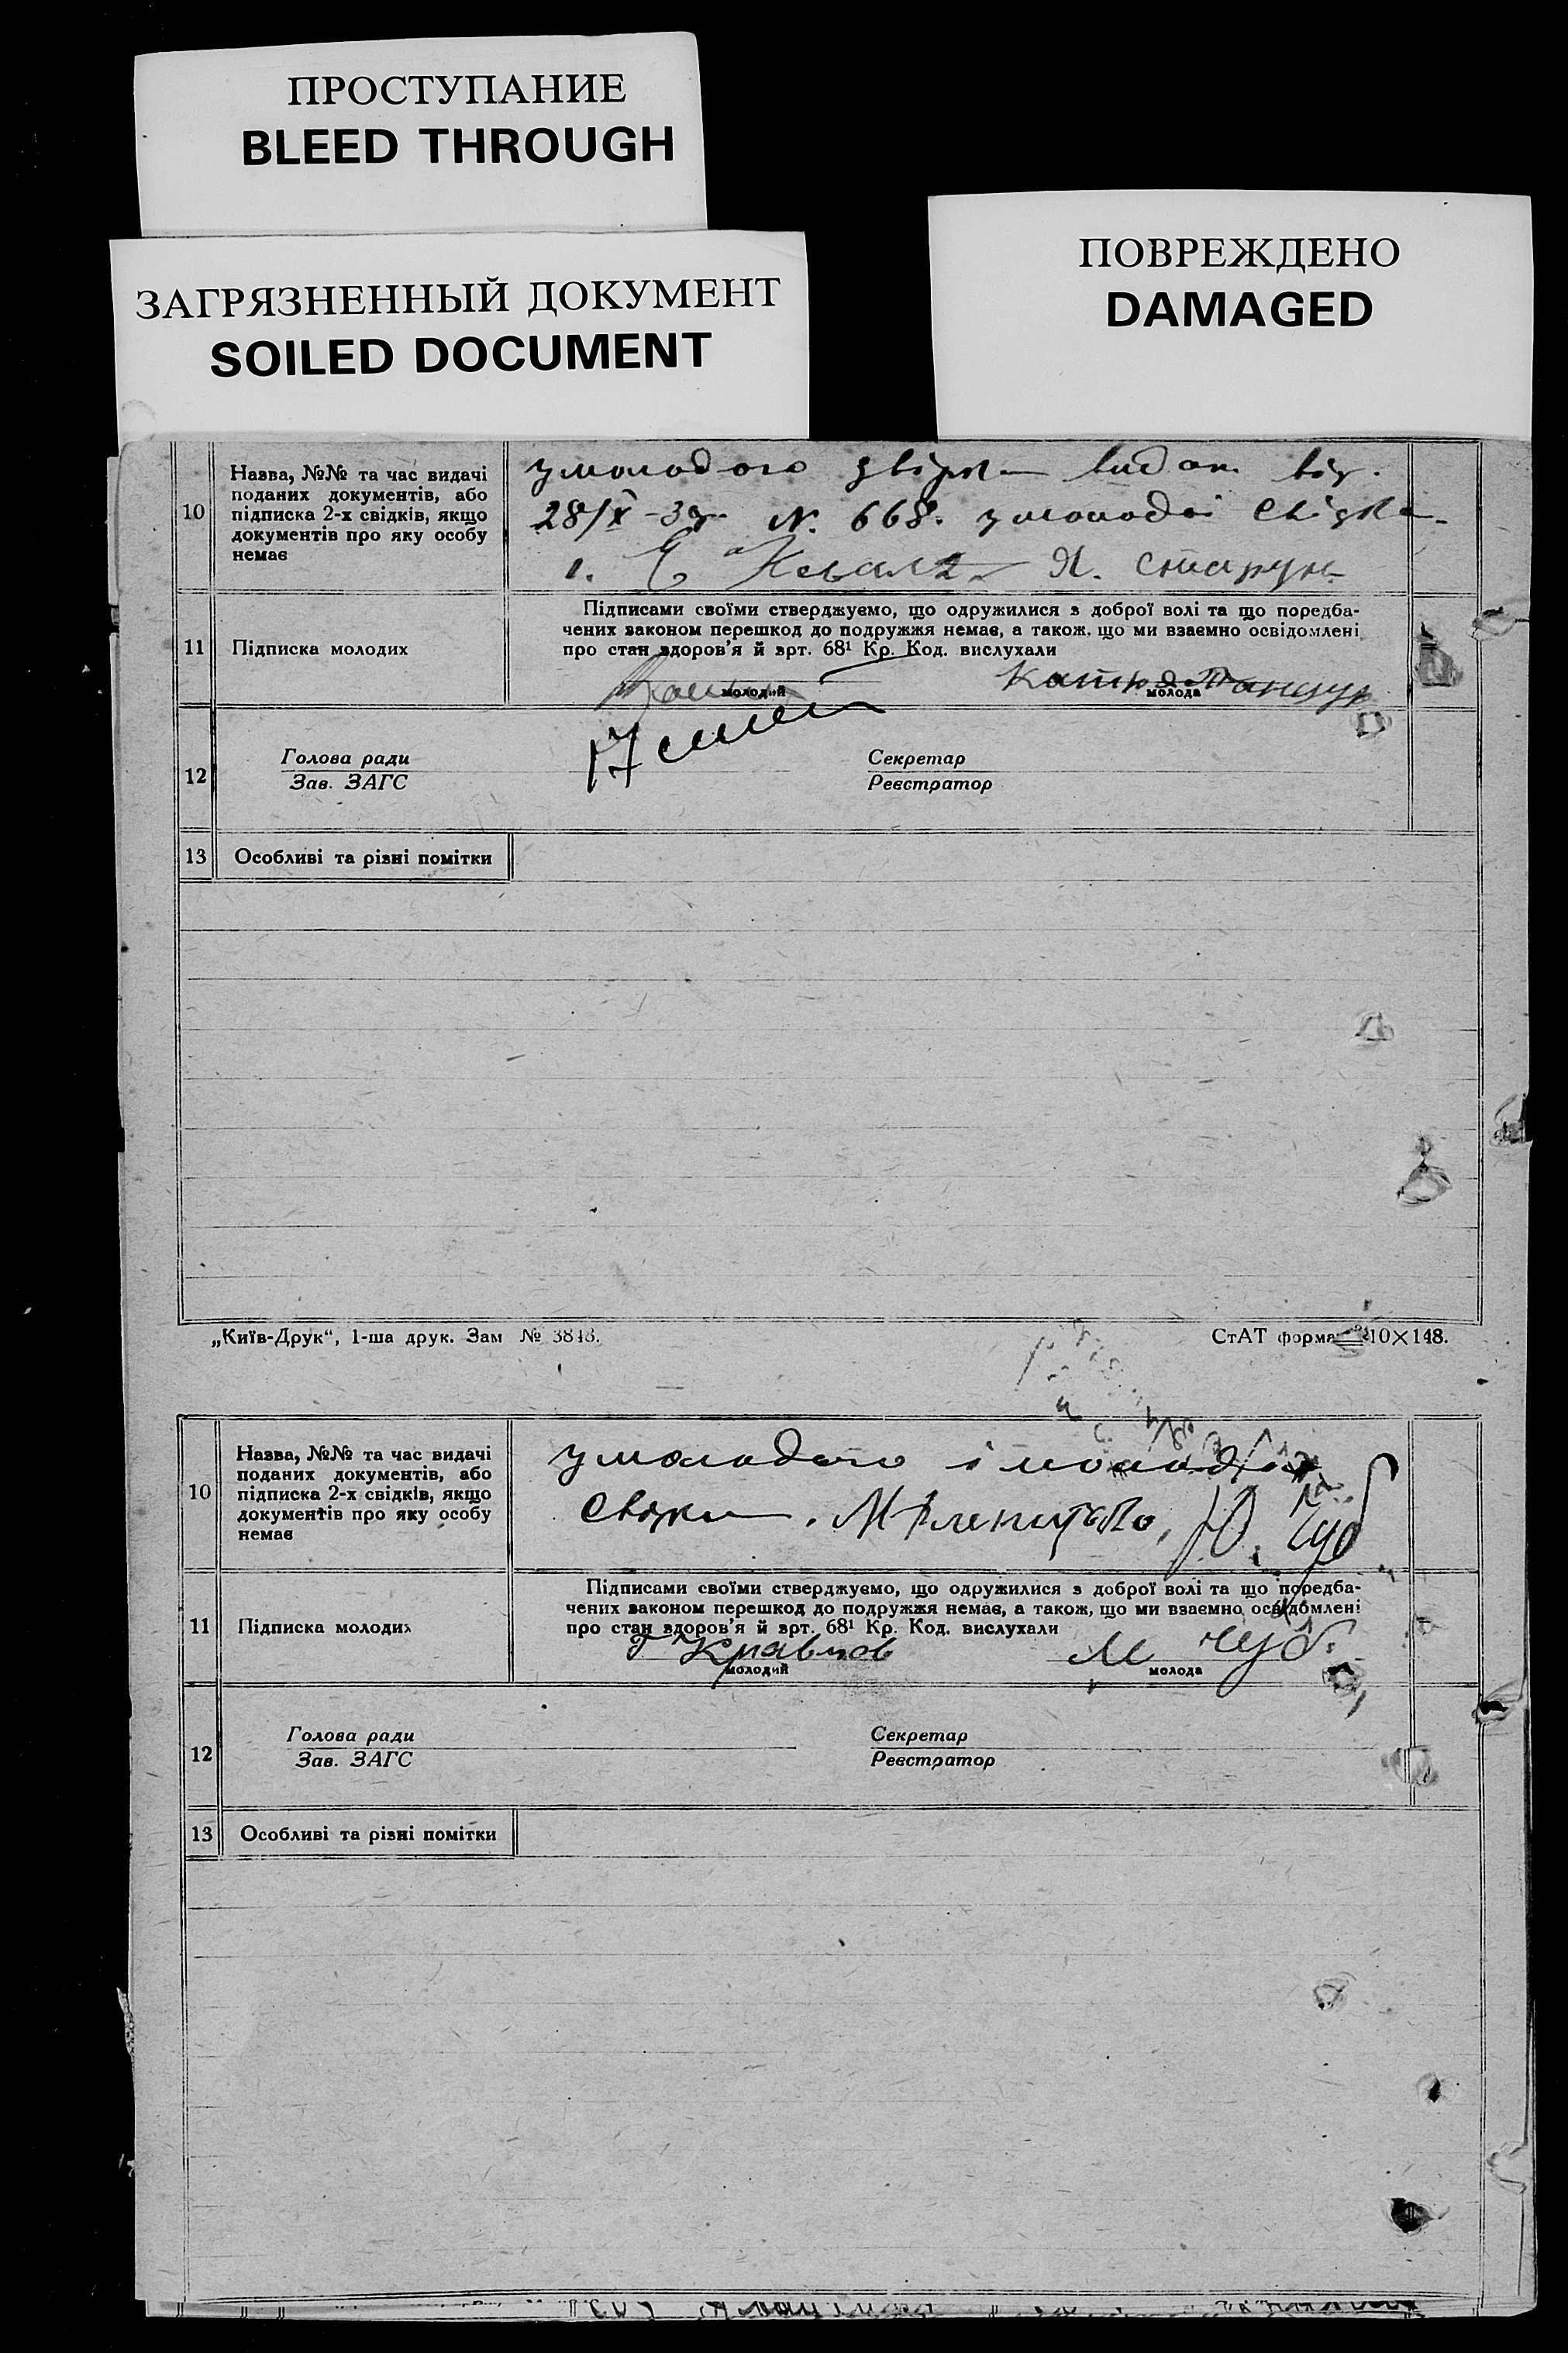 ПРОСТУПАНИЕ
BLEED THROUGH
ЗАГРЯЗНЕННЫЙ ДОКУМЕНТ
SOILED DOCUMENT
ПОВРЕЖДЕНО
DAMAGED
10
Назва, №№ та час видачі
поданих документів, або
підписка 2-х свідків, якщо
документів про яку особу
немає
у молодого видан від
28/X N. 668. у молодої свідки
1. Е Я. Старун
11
Підписка молодих
Підписами своїми стверджуємо, що одружилися з доброї волі та що поредба-
чених законом перешкод до подружжя немає, а також, що ми взаємно освідомлені
про стан здоров'я й арт. 68¹ Кр. Код. вислухали
Катря Танцур
молодий
молода
12
Голова ради
Зав. ЗАГС
Секретар
Реєстратор
13
Особливі та різні помітки
„Київ-Друк“, 1-ша друк. Зам № 3848.
СтАТ формат 210×148.
10
Назва, №№ та час видачі
поданих документів, або
підписка 2-х свідків, якщо
документів про яку особу
немає
у молодого і молодої
свідки. Ю. Чуб
11
Підписка молодих
Підписами своїми стверджуємо, що одружилися з доброї волі та що поредба-
чених законом перешкод до подружжя немає, а також, що ми взаємно освідомлені
про стан здоров'я й арт. 68¹ Кр. Код. вислухали
Г Кравцов
М Чуб.
молодий
молода
12
Голова ради
Зав. ЗАГС
Секретар
Реєстратор
13
Особливі та різні помітки